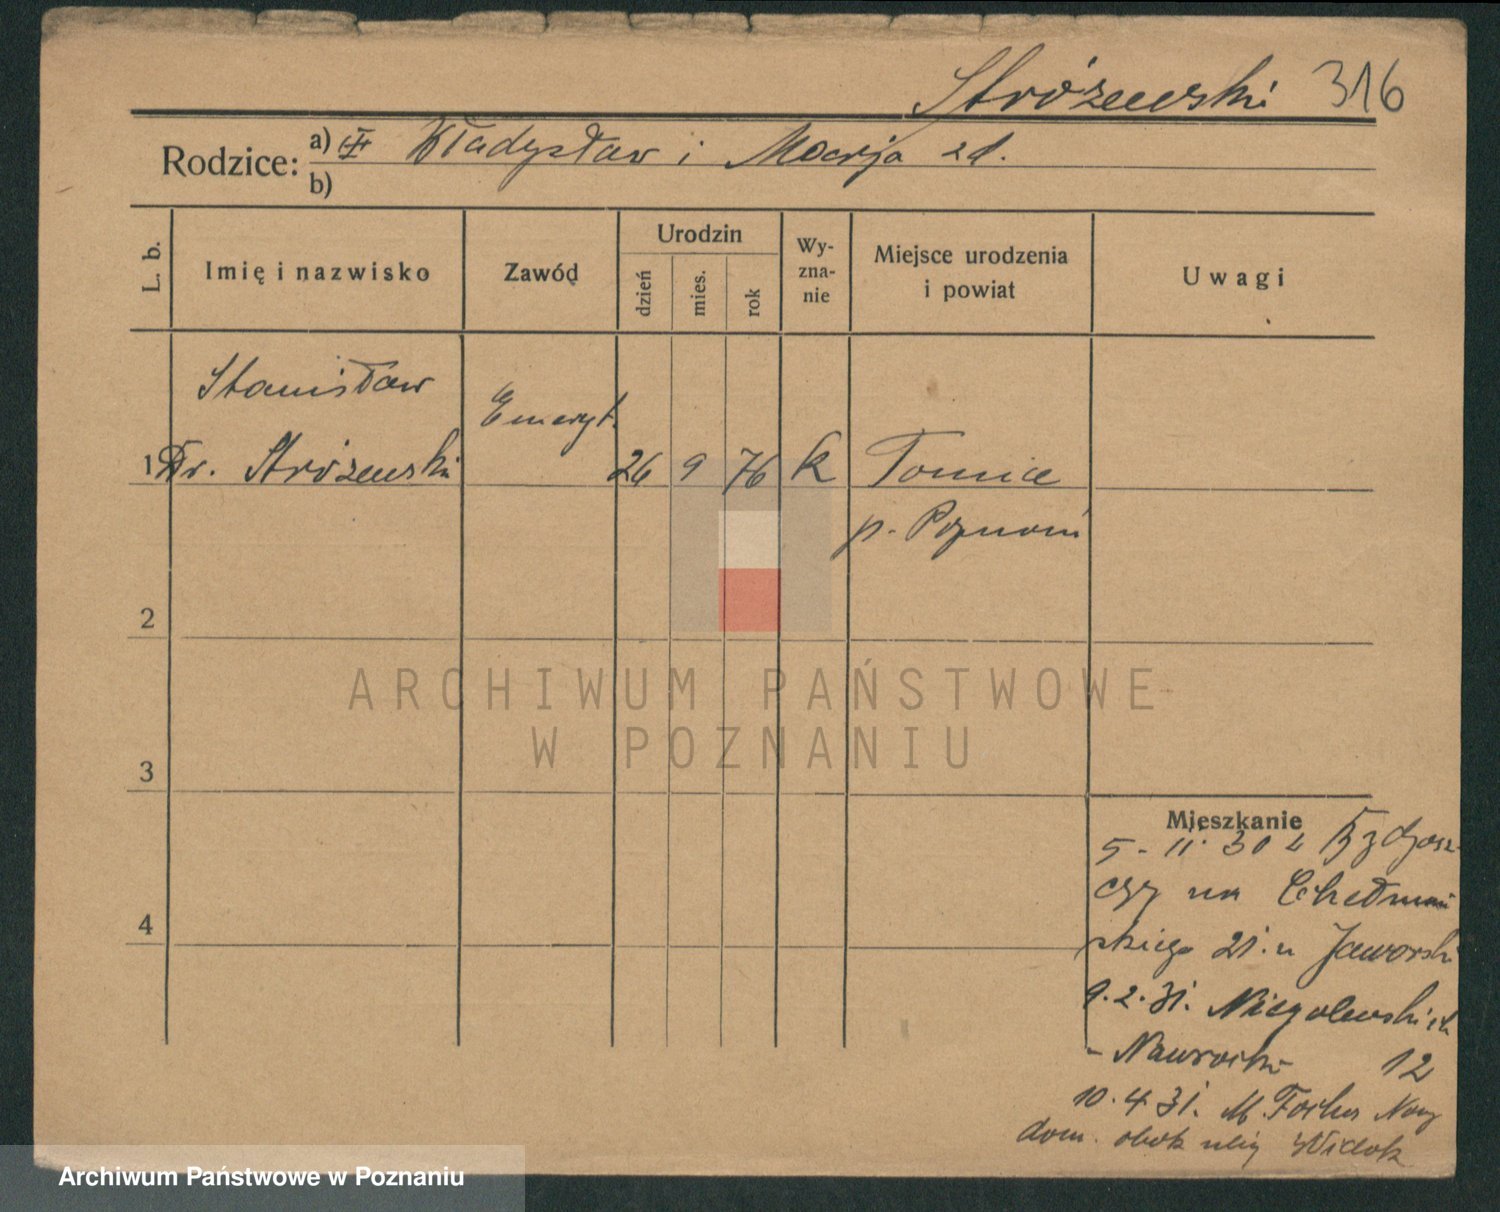 Stróżewski 316
Rodzice: a) Władysław i Marja zd.
b)
L. b. Imię i nazwisko Zawód Urodzin dzień mies. rok Wyznanie Miejsce urodzenia i powiat Uwagi
Stanisław Emeryt.
1 Dr. Stróżewski 26 9 76 k Tomice
p. Poznań
2
3
4
Mieszkanie
5. 11. 30 z Bydgosz-
czy na Chełmoń
skiego 21. u Jaworski
9. 2. 31. Niegolewskich
- Nawrocki 12
10. 4. 31. M. Focha Nowy
dom. obok ulicy Widok
ARCHIWUM PAŃSTWOWE
W POZNANIU
Archiwum Państwowe w Poznaniu